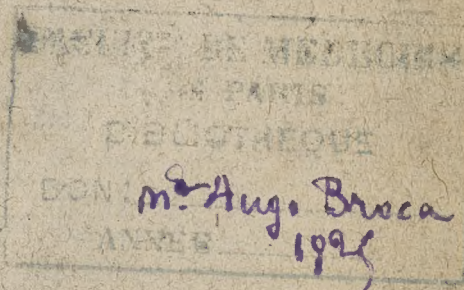 FACULTÉ DE MEDECINE
DE PARIS
BIBLIOTHEQUE
DON: Mr. Augo. Broca
ANNEE 1925